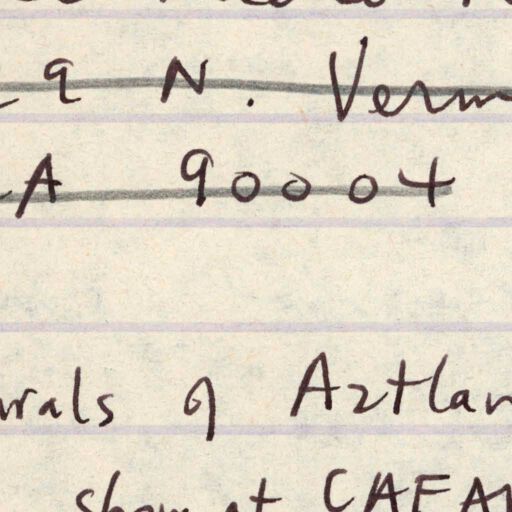 9 N. Verm
A 90004
urals of Aztlan
show at CAFAM